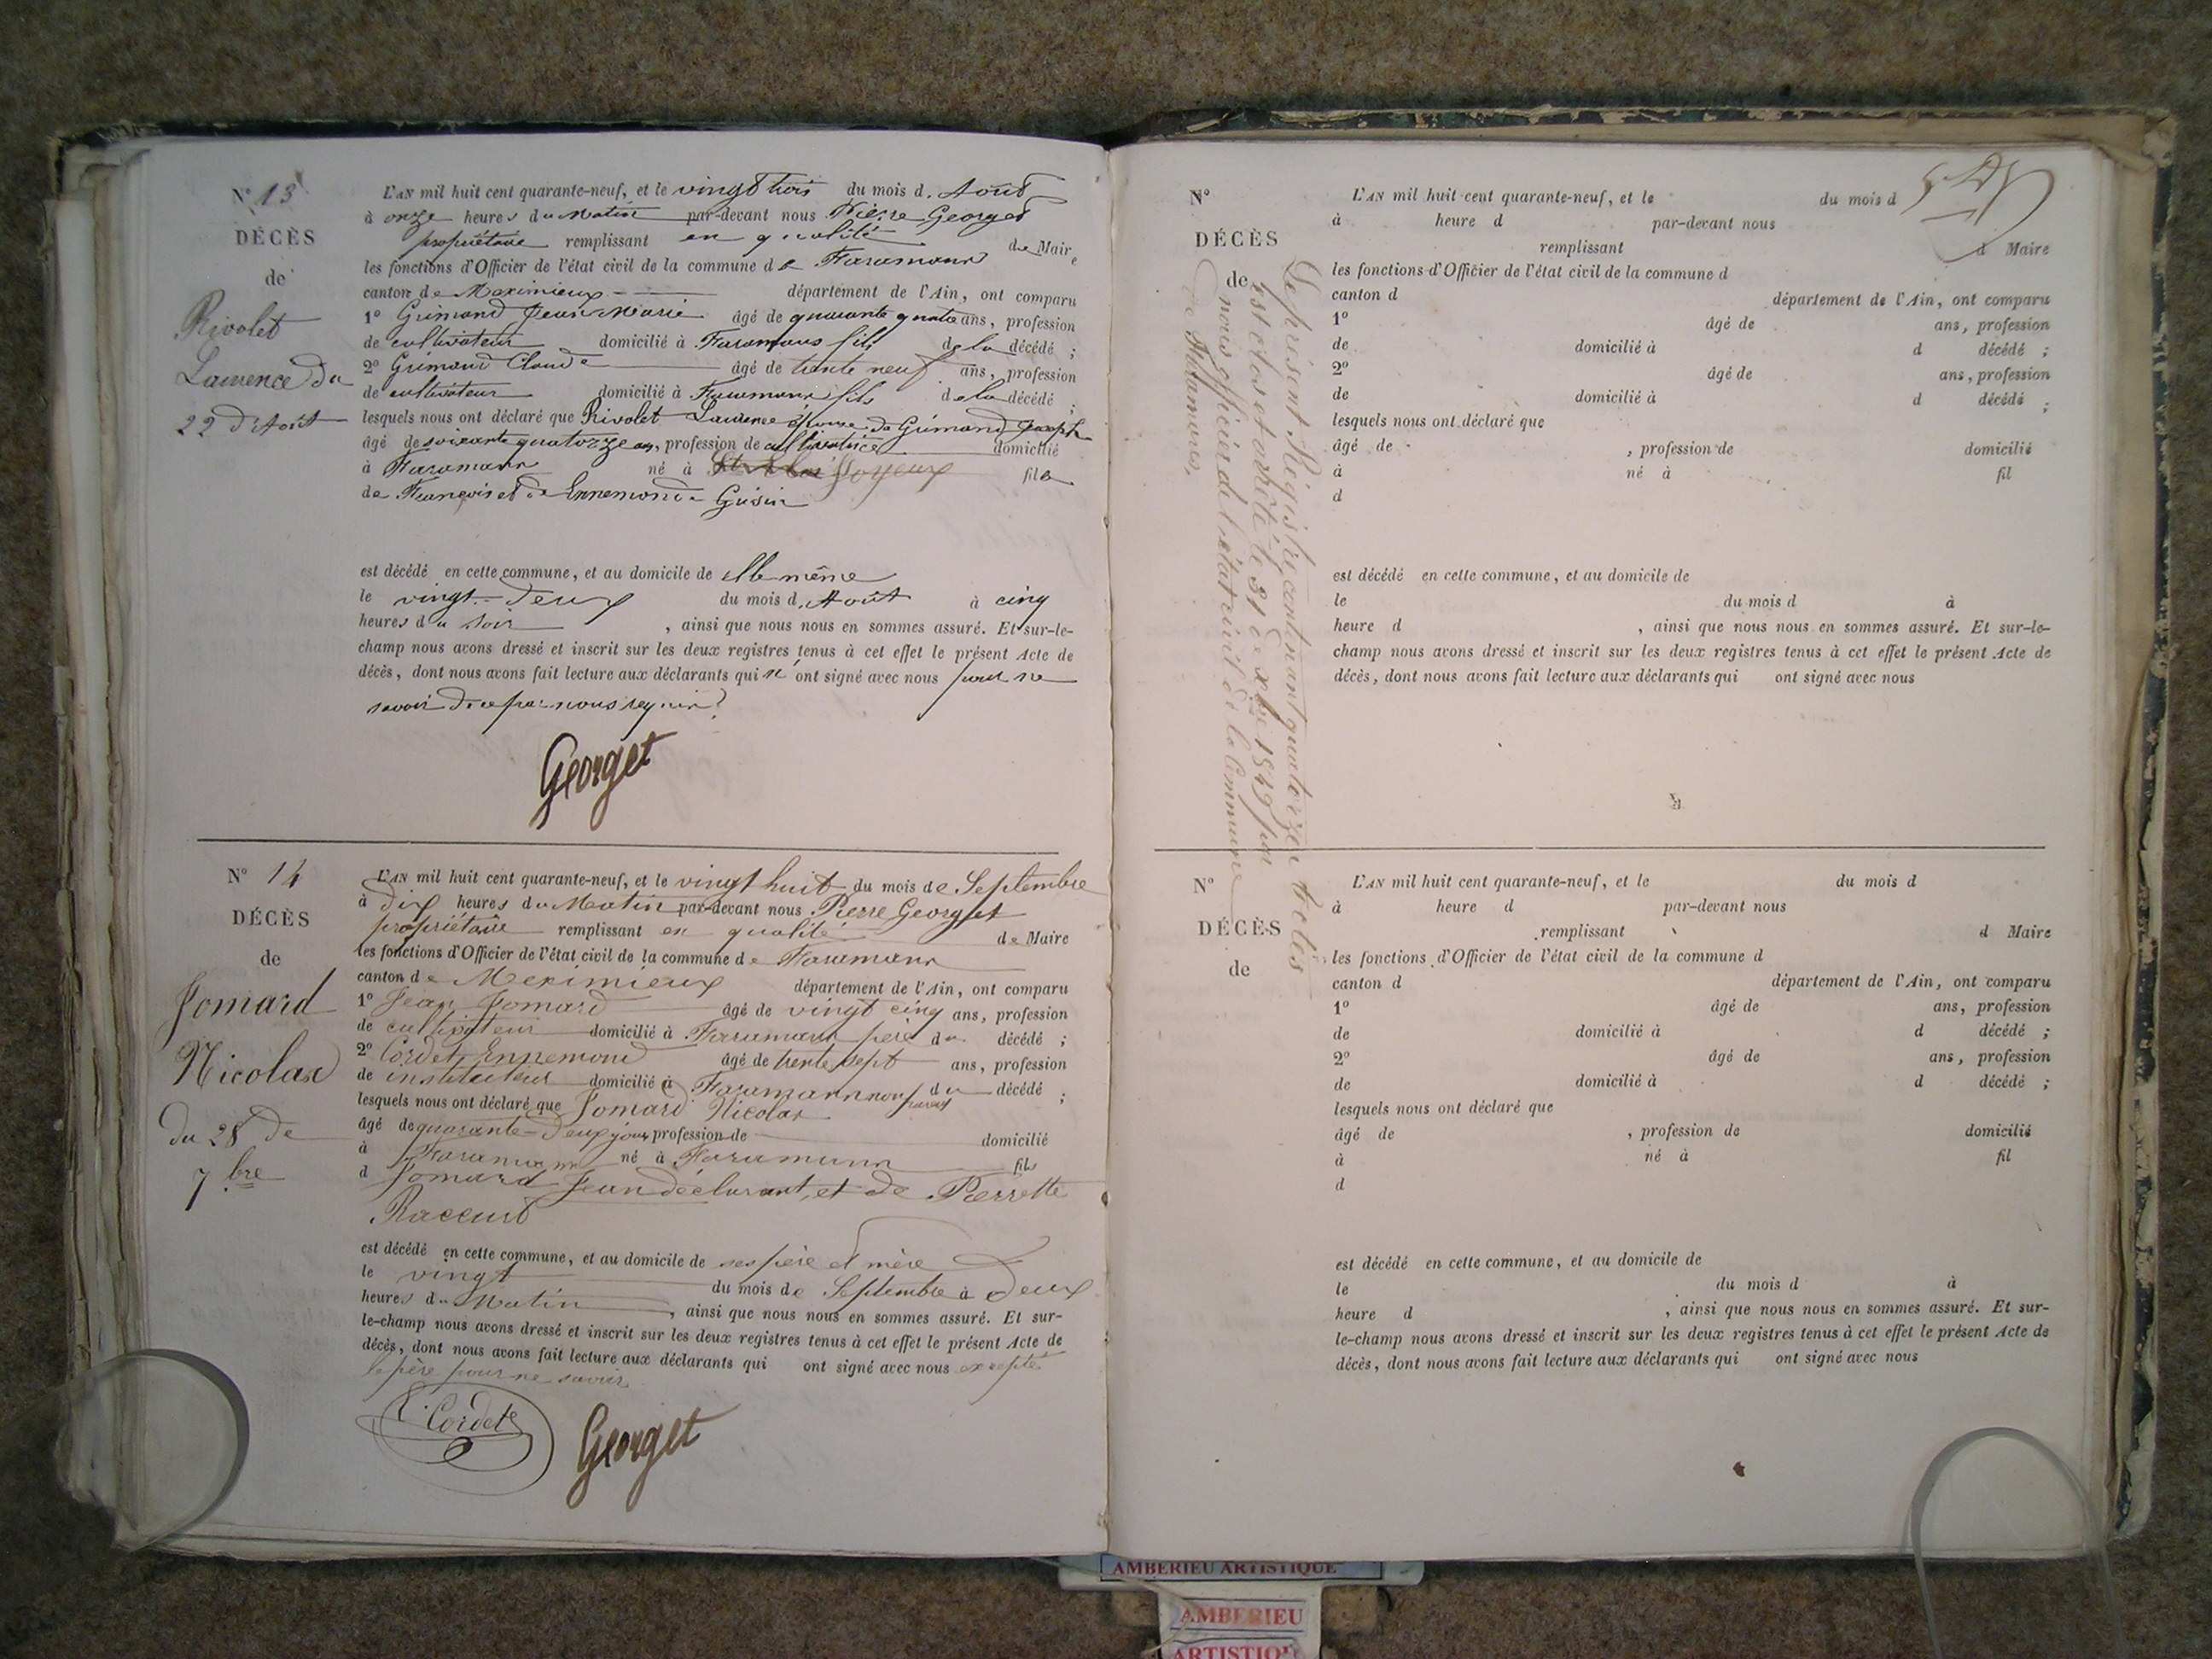 N° 13
DÉCÈS
de
Rivolet
Laurence du
22 d'Août
L'AN mil huit cent quarante-neuf, et le vingt trois du mois d'Août
à onze heures du Matin par-devant nous Pierre Georget
propriétaire remplissant en qualité de Maire
les fonctions d'Officier de l'état civil de la commune de Faramans
canton de Meximieux département de l'Ain, ont comparu
1° Grimand Jean Marie âgé de quarante quatre ans, profession
de cultivateur domicilié à Faramans fils de la décédé ;
2° Grimand Claude âgé de trente neuf ans, profession
de cultivateur domicilié à Faramans fils de la décédé ;
lesquels nous ont déclaré que Rivolet Laurence épouse de Grimand Joseph
âgé de soixante quatorze ans, profession de cultivatrice domicilié
à Faramans né à Joyeux fille
de François et de Ennemonde Guisin
est décédé en cette commune, et au domicile de elle même
le vingt-deux du mois d'Août à cinq
heures du soir , ainsi que nous nous en sommes assuré. Et sur-le-
champ nous avons dressé et inscrit sur les deux registres tenus à cet effet le présent Acte de
décès, dont nous avons fait lecture aux déclarants qui n'ont signé avec nous pour ne
savoir de ce par nous requis
Georget
N° 14
DÉCÈS
de
Jomard
Nicolas
du 28 de
7bre
L'AN mil huit cent quarante-neuf, et le vingt huit du mois de Septembre
à dix heures du Matin par-devant nous Pierre Georget
propriétaire remplissant en qualité de Maire
les fonctions d'Officier de l'état civil de la commune de Faramans
canton de Meximieux département de l'Ain, ont comparu
1° Jean Jomard âgé de vingt cinq ans, profession
de cultivateur domicilié à Faramans père du décédé ;
2° Cordet Ennemond âgé de trente sept ans, profession
de instituteur domicilié à Faramans non parent du décédé ;
lesquels nous ont déclaré que Jomard Nicolas
âgé de quarante-deux jours profession de domicilié
à Faramans né à Faramans fils
d Jomard Jean déclarant, et de Pierrette
Raccurt
est décédé en cette commune, et au domicile de ses père et mère
le vingt du mois de Septembre à deux
heures du Matin , ainsi que nous nous en sommes assuré. Et sur-
le-champ nous avons dressé et inscrit sur les deux registres tenus à cet effet le présent Acte de
décès, dont nous avons fait lecture aux déclarants qui ont signé avec nous excepté
le père pour ne savoir
E. Cordet
Georget
N°
DÉCÈS
de
Le présent Régistre contenant quatorze actes
est clos et arrêté le 31 de Xbre 1849 par
nous officier de l'état civil de la Commune
de Faramans.
L'AN mil huit cent quarante-neuf, et le du mois d
à heure d par-devant nous
remplissant d Maire
les fonctions d'Officier de l'état civil de la commune d
canton d département de l'Ain, ont comparu
1° âgé de ans, profession
de domicilié à d décédé ;
2° âgé de ans, profession
de domicilié à d décédé ;
lesquels nous ont déclaré que
âgé de , profession de domicilié
à né à fil
d
est décédé en cette commune, et au domicile de
le du mois d à
heure d , ainsi que nous nous en sommes assuré. Et sur-le-
champ nous avons dressé et inscrit sur les deux registres tenus à cet effet le présent Acte de
décès, dont nous avons fait lecture aux déclarants qui ont signé avec nous
N°
DÉCÈS
de
L'AN mil huit cent quarante-neuf, et le du mois d
à heure d par-devant nous
remplissant d Maire
les fonctions d'Officier de l'état civil de la commune d
canton d département de l'Ain, ont comparu
1° âgé de ans, profession
de domicilié à d décédé ;
2° âgé de ans, profession
de domicilié à d décédé ;
lesquels nous ont déclaré que
âgé de , profession de domicilié
à né à fil
d
est décédé en cette commune, et au domicile de
le du mois d à
heure d , ainsi que nous nous en sommes assuré. Et sur-
le-champ nous avons dressé et inscrit sur les deux registres tenus à cet effet le présent Acte de
décès, dont nous avons fait lecture aux déclarants qui ont signé avec nous
AMBERIEU ARTISTIQUE
AMBERIEU
ARTISTIQU